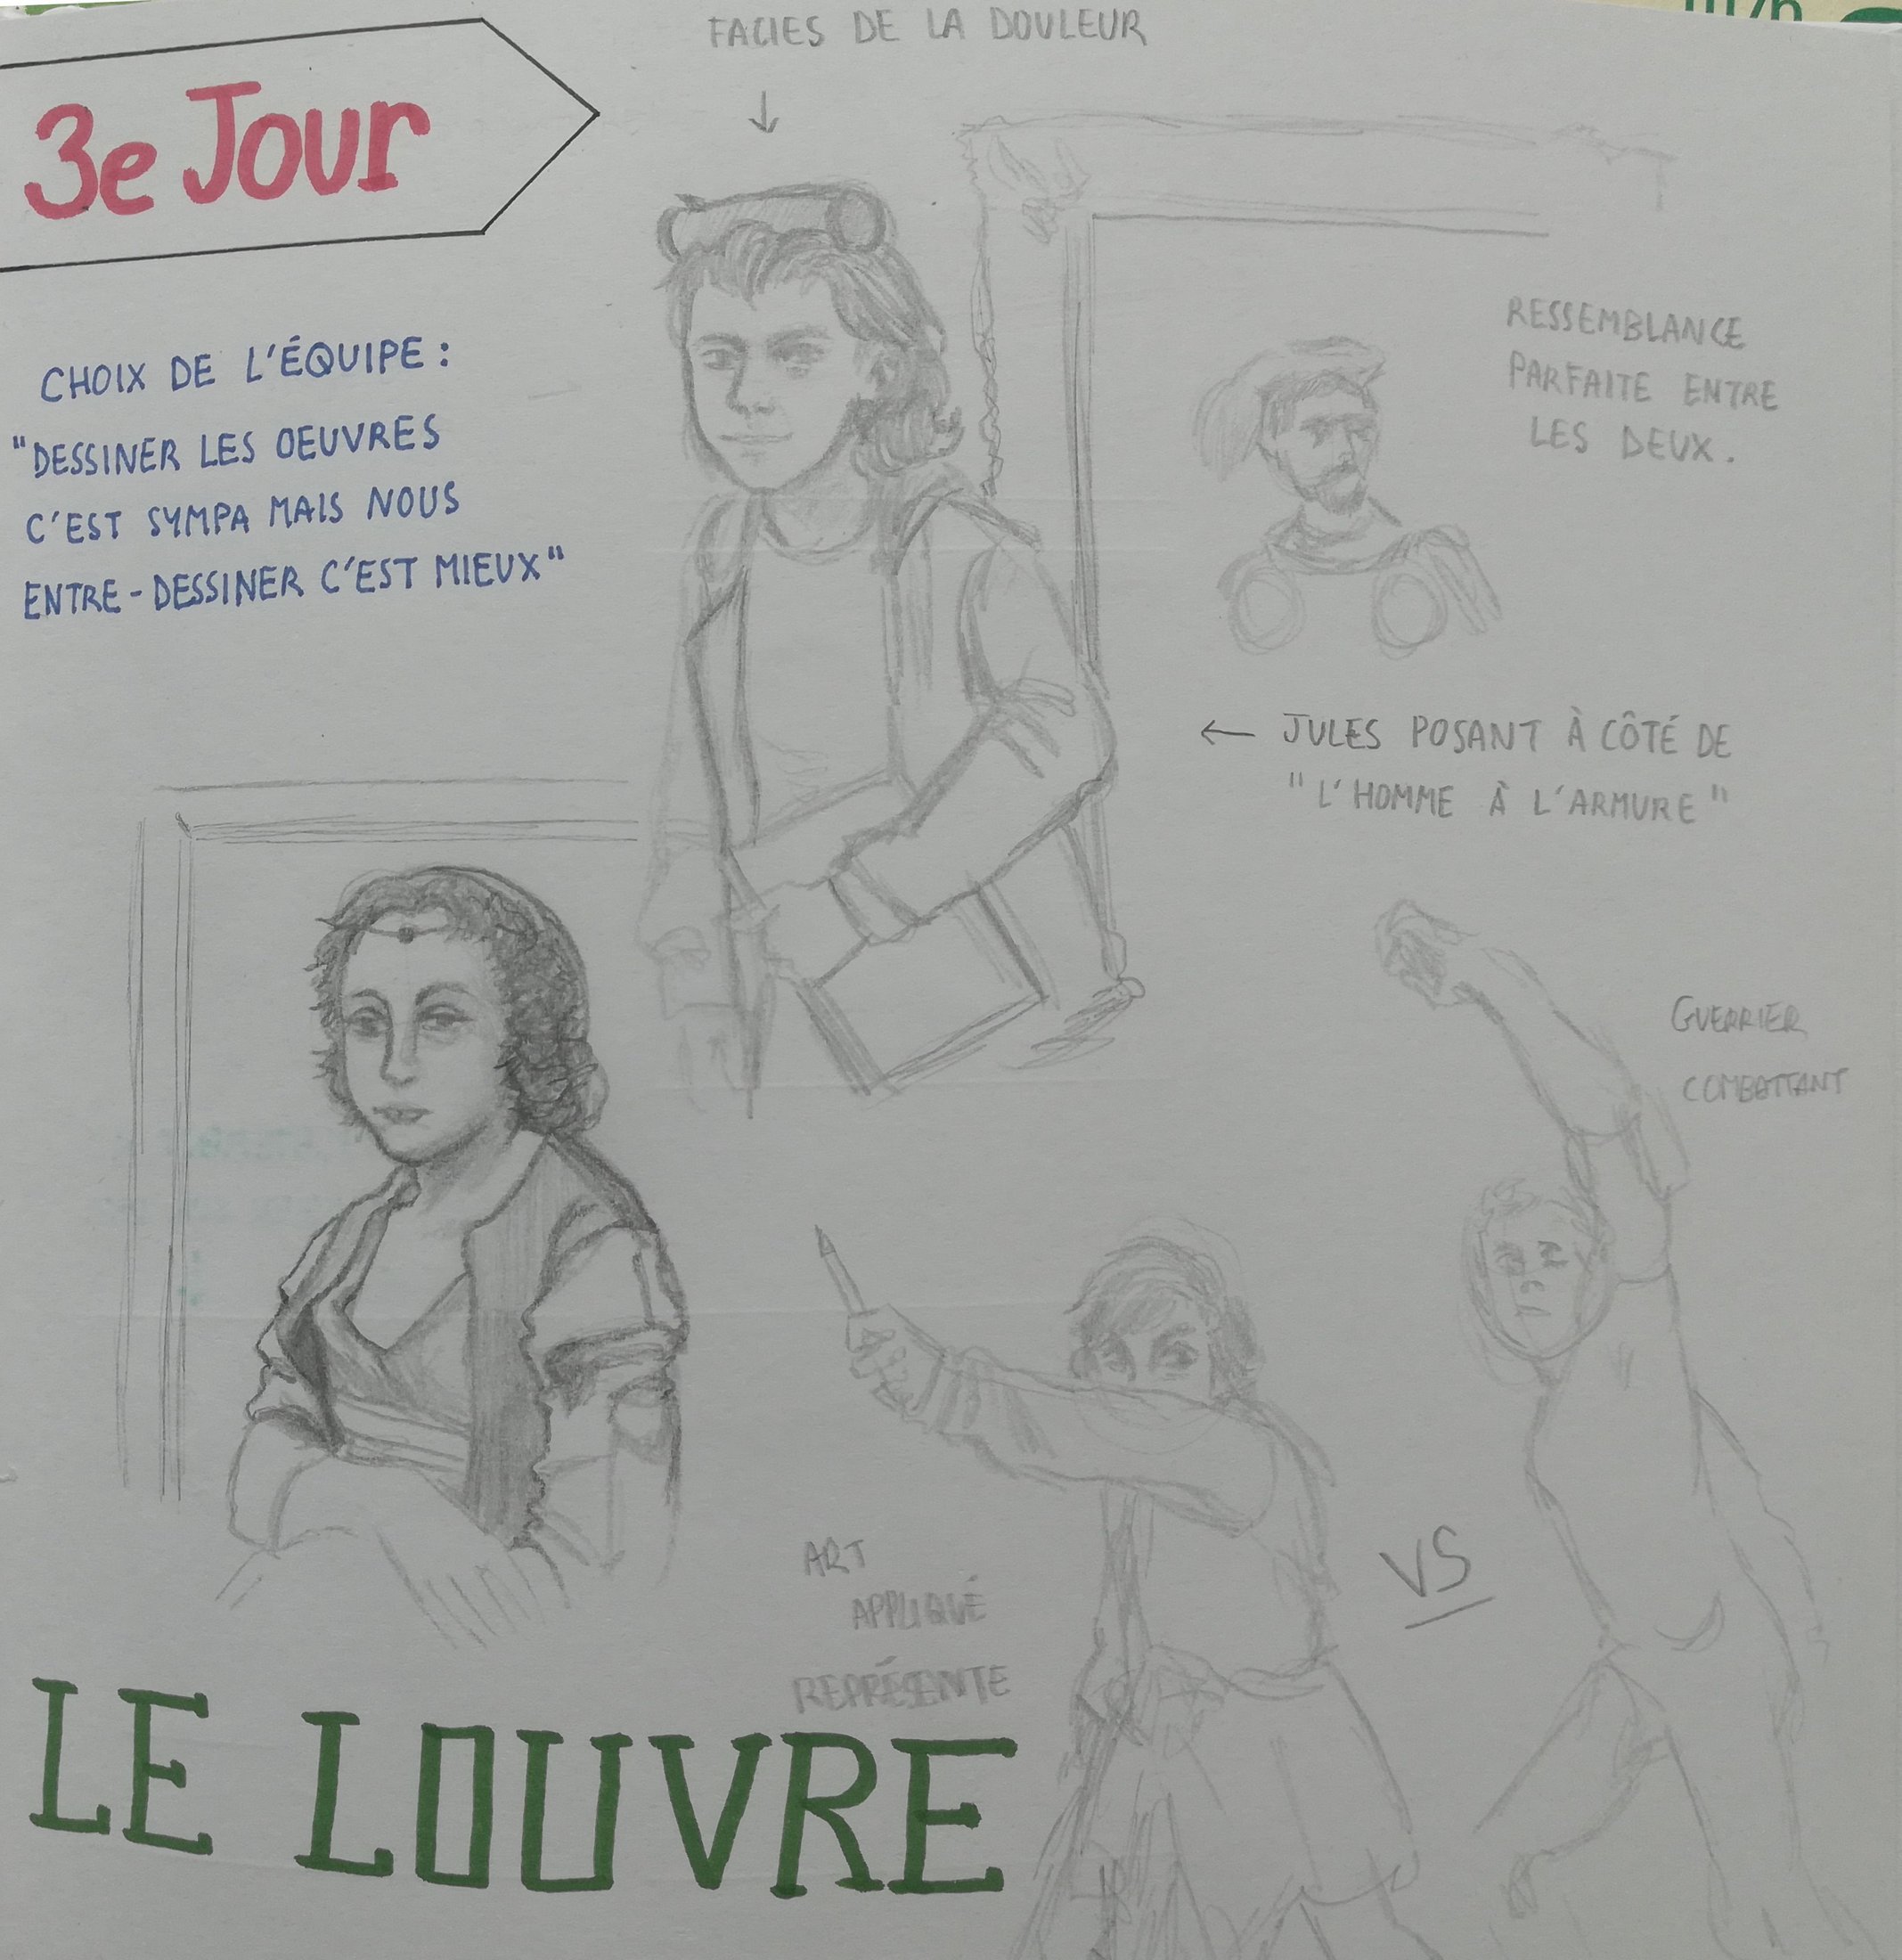 3e Jour
FACIES DE LA DOULEUR
CHOIX DE L'ÉQUIPE :
"DESSINER LES OEUVRES
C'EST SYMPA MAIS NOUS
ENTRE-DESSINER C'EST MIEUX"
RESSEMBLANCE
PARFAITE ENTRE
LES DEUX.
← JULES POSANT À CÔTÉ DE
"L'HOMME À L'ARMURE"
GUERRIER
COMBATTANT
VS
ART
APPLIQUÉ
REPRÉSENTE
LE LOUVRE